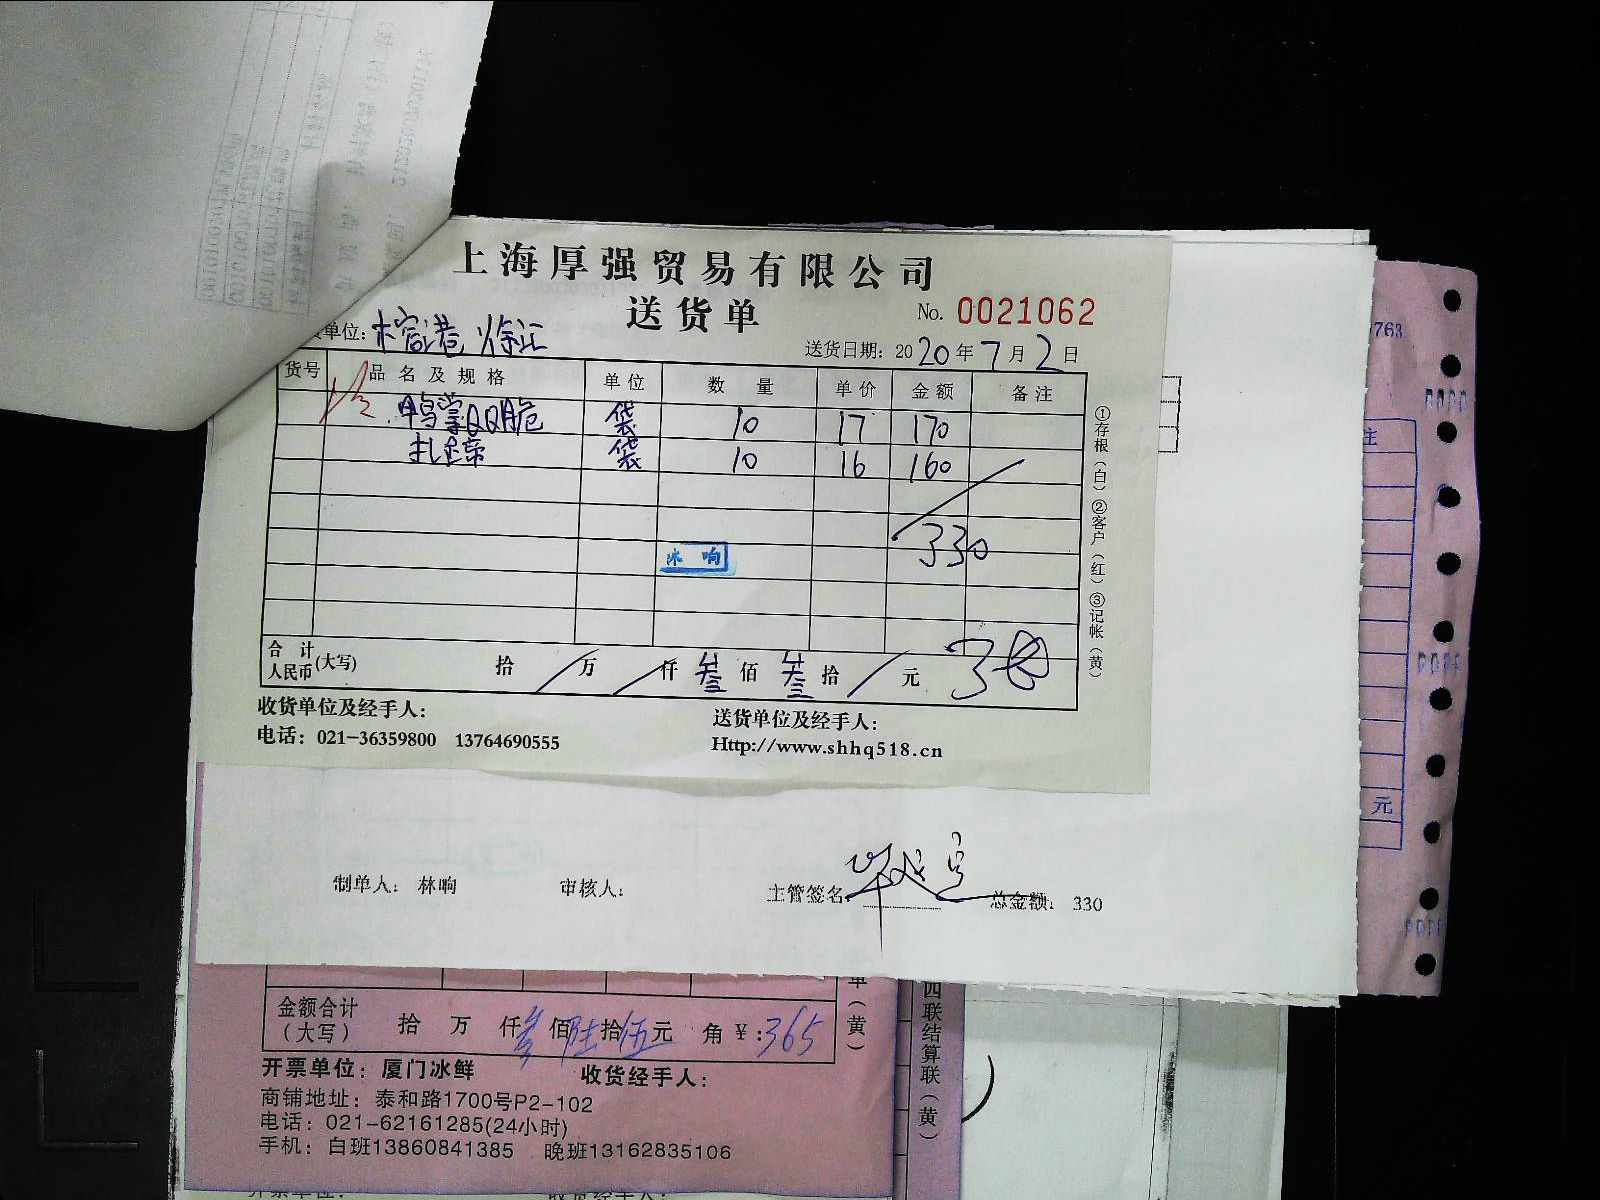 上海厚强贸易有限公司
送货单
No. 0021062
单位: 榕港 徐汇
送货日期: 2020年7月2日
货号 品名及规格 单位 数量 单价 金额 备注
鸭掌QQ脆 袋 10 17 170
扎蹄 袋 10 16 160
330
合计人民币(大写) 拾 万 仟 叁 佰 叁 拾 元 330
①存根(白)②客户(红)③记帐(黄)
收货单位及经手人:
送货单位及经手人:
电话: 021-36359800 13764690555
Http://www.shhq518.cn
制单人: 林响
审核人:
主管签名
总金额: 330
金额合计(大写) 拾 万 仟 叁 佰 陆 拾 伍 元 角 ¥:365
单(黄)
四联结算联(黄)
开票单位: 厦门冰鲜
收货经手人:
商铺地址: 泰和路1700号P2-102
电话: 021-62161285(24小时)
手机: 白班13860841385 晚班13162835106
763
注
元